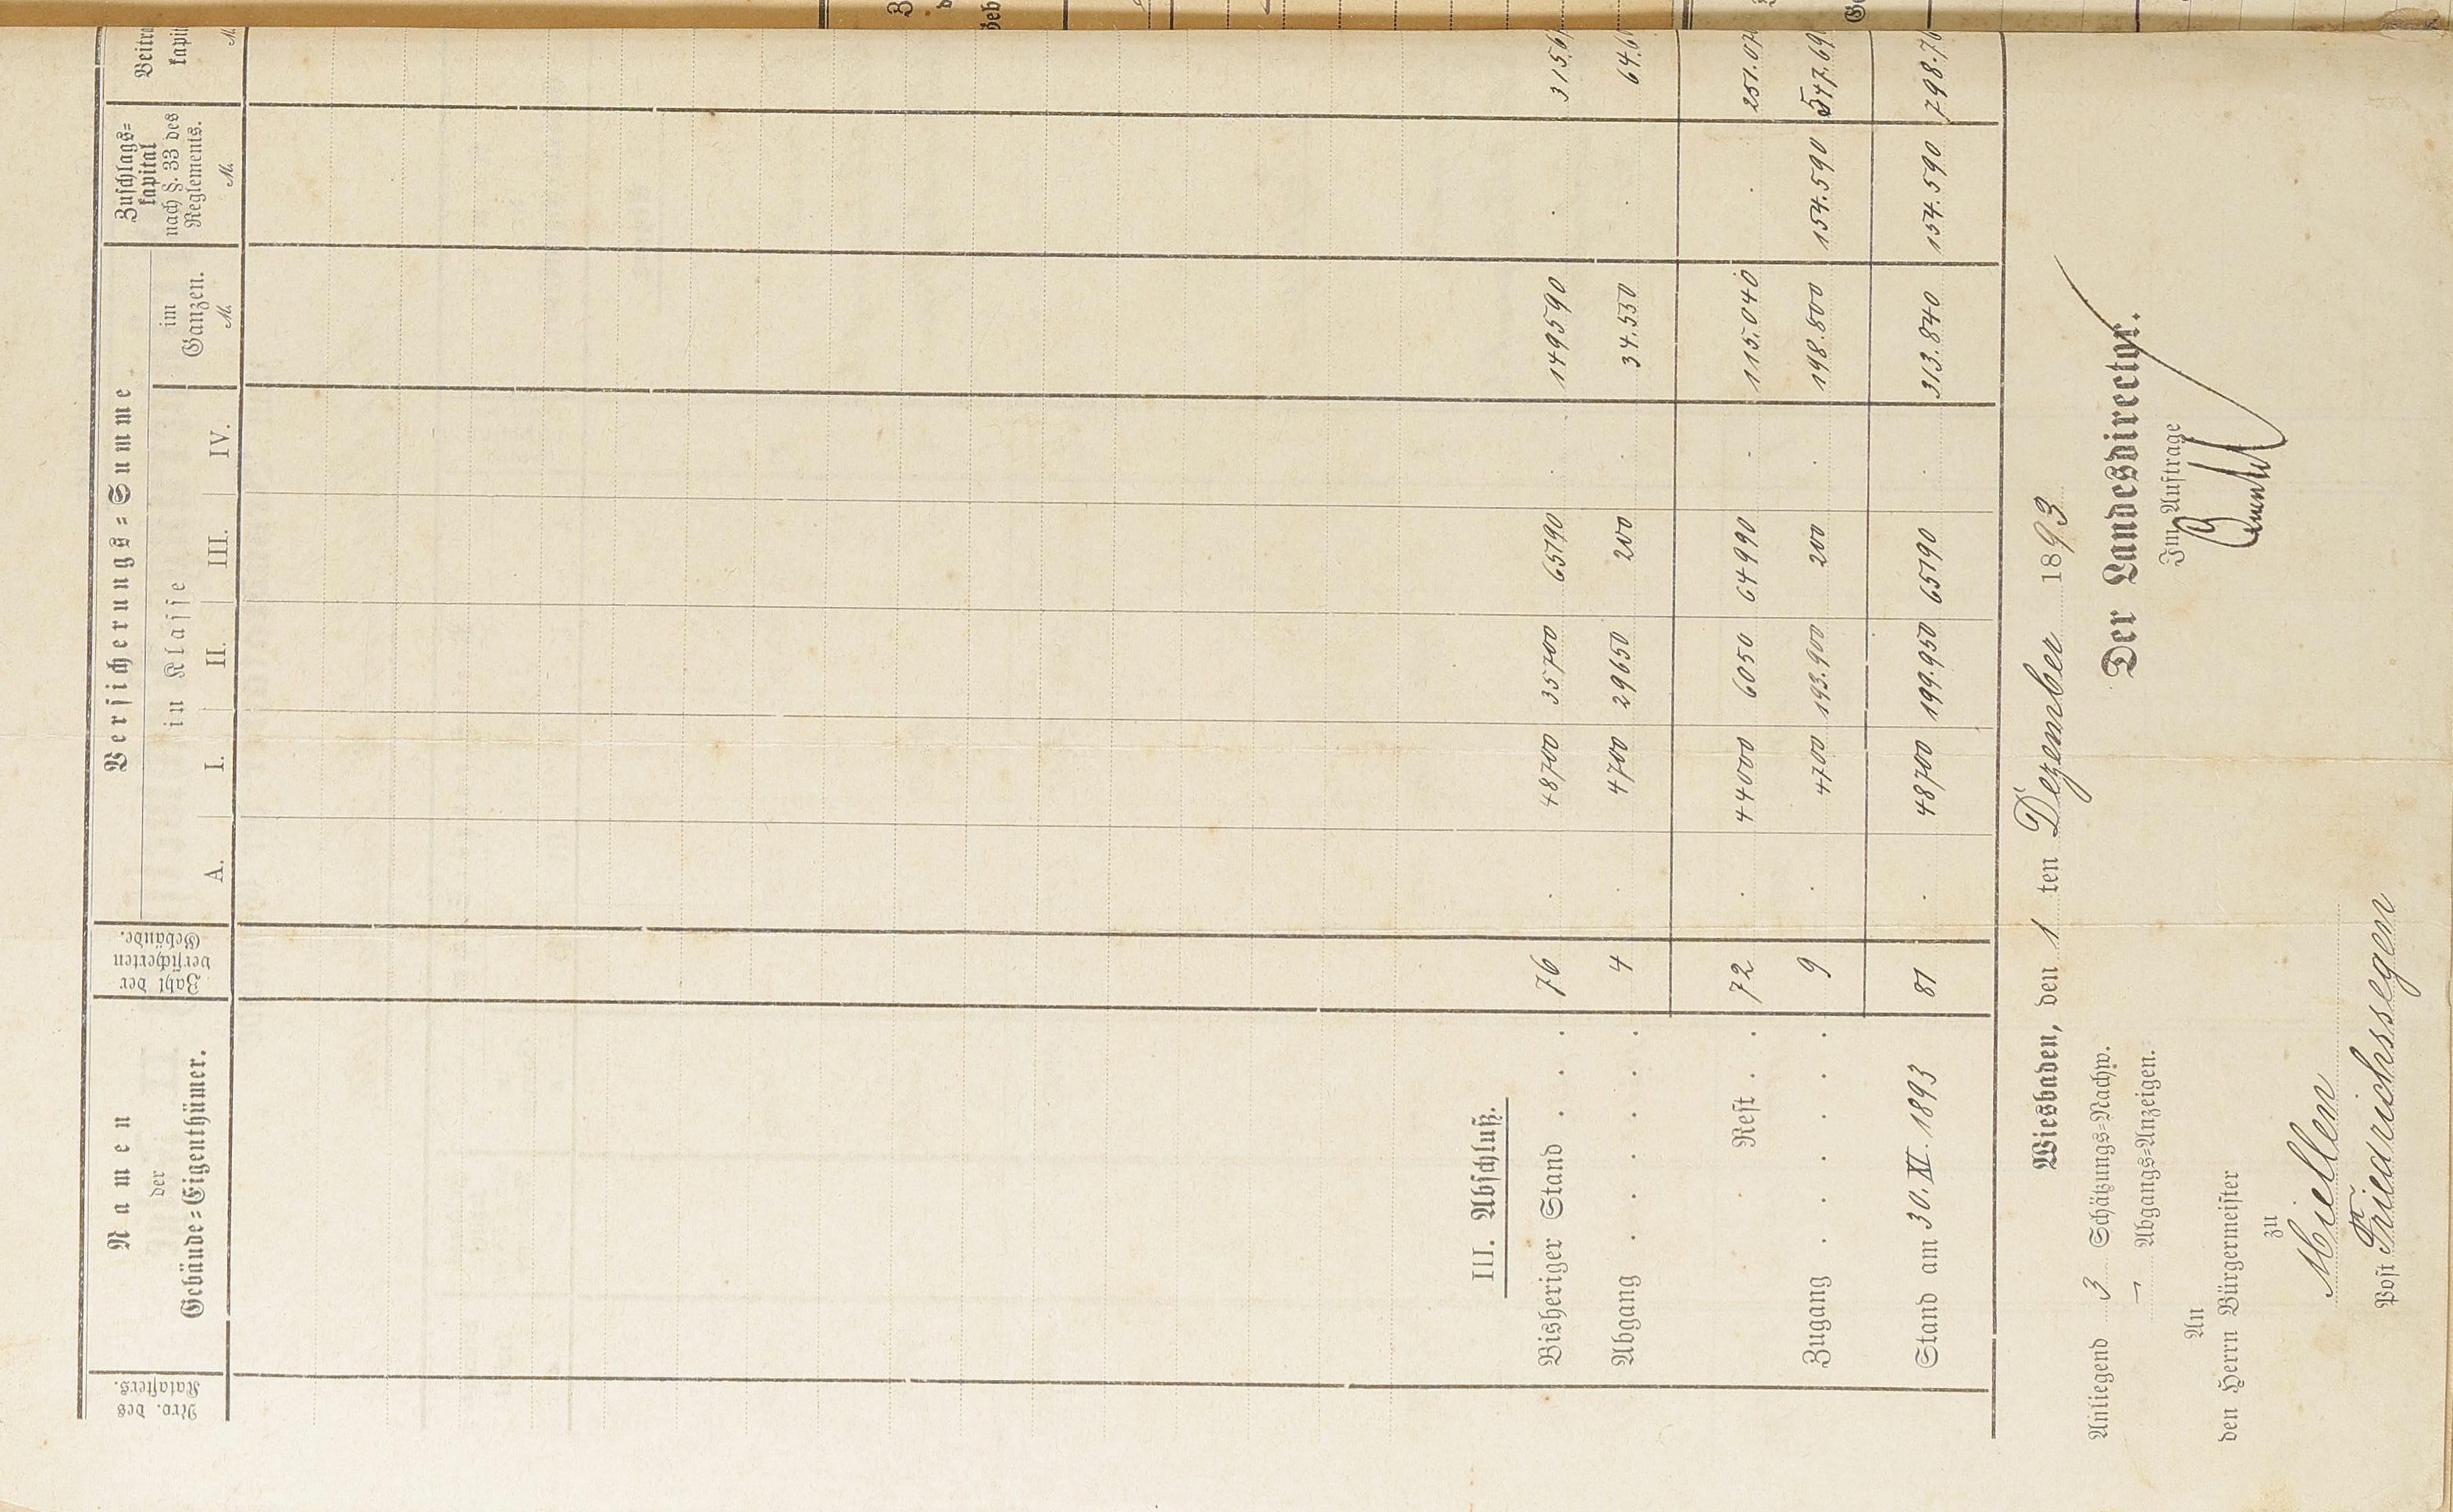 Nro. des
Katasters.
Namen
der
Gebäude=Eigenthümer.
Zahl der
versicherten
Gebäude.
Versicherungs=Summe
in Klasse
A. I. II. III. IV.
im
Ganzen.
M.
Zuschlags=
kapital
nach §. 33 des
Reglements.
M.
Beitra
kapit
M.
III. Abschluß.
Bisheriger Stand . . . . 76 . 48700 35700 65190 . 149590 . 315.6
Abgang . . . . . 4 . 4700 29650 200 . 34.550 . 64.6
Rest . . 72 . 44000 6050 64990 - 115.040 . 251.07
Zugang . . . . . 9 . 4700 193.900 200 . 198.800 154.590 547.69
Stand am 30. XI. 1893 81 . 48700 199.950 65190 . 313.840 154.590 798.76
Wiesbaden, den 1 ten Dezember 1893
Anliegend 3 Schätzungs=Nachw.
— Abgangs=Anzeigen.
Der Landesdirector.
Im Auftrage
An
den Herrn Bürgermeister
zu
Miellen
Post Friedrichssegen